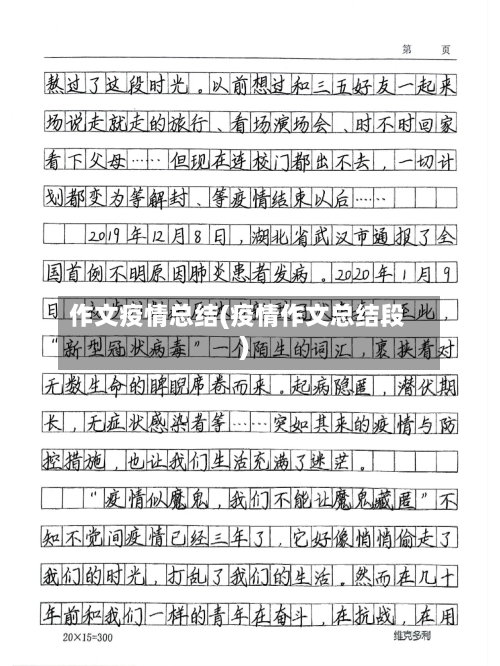 第 页
熬过了这段时光。以前想过和三五好友一起来
场说走就走的旅行、看场演场会、时不时回家
看下父母……但现在连校门都出不去，一切计
划都变为等解封、等疫情结束以后……
2019年12月8日，湖北省武汉市通报了全
国首例不明原因肺炎患者发病。2020年1月9
日
至此，
作文疫情总结(疫情作文总结段
)
“新型冠状病毒”一个陌生的词汇，裹挟着对
无数生命的睥睨席卷而来。起病隐匿，潜伏期
长，无症状感染者等……突如其来的疫情与防
控措施，也让我们生活充满了迷茫。
“疫情似魔鬼，我们不能让魔鬼藏匿”不
知不觉间疫情已经三年了，它好像悄悄偷走了
我们的时光，打乱了我们的生活。然而在几十
年前和我们一样的青年在奋斗，在抗战，在用
20×15=300 维克多利